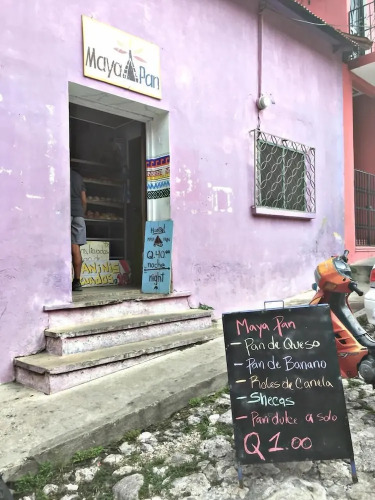 Maya Pan
Q.40
noche
night
ANINIS
Maya Pan
- Pan de Queso
- Pan de Banano
- Roles de Canela
- Shecas
- Pan dulce a solo
Q 1.00